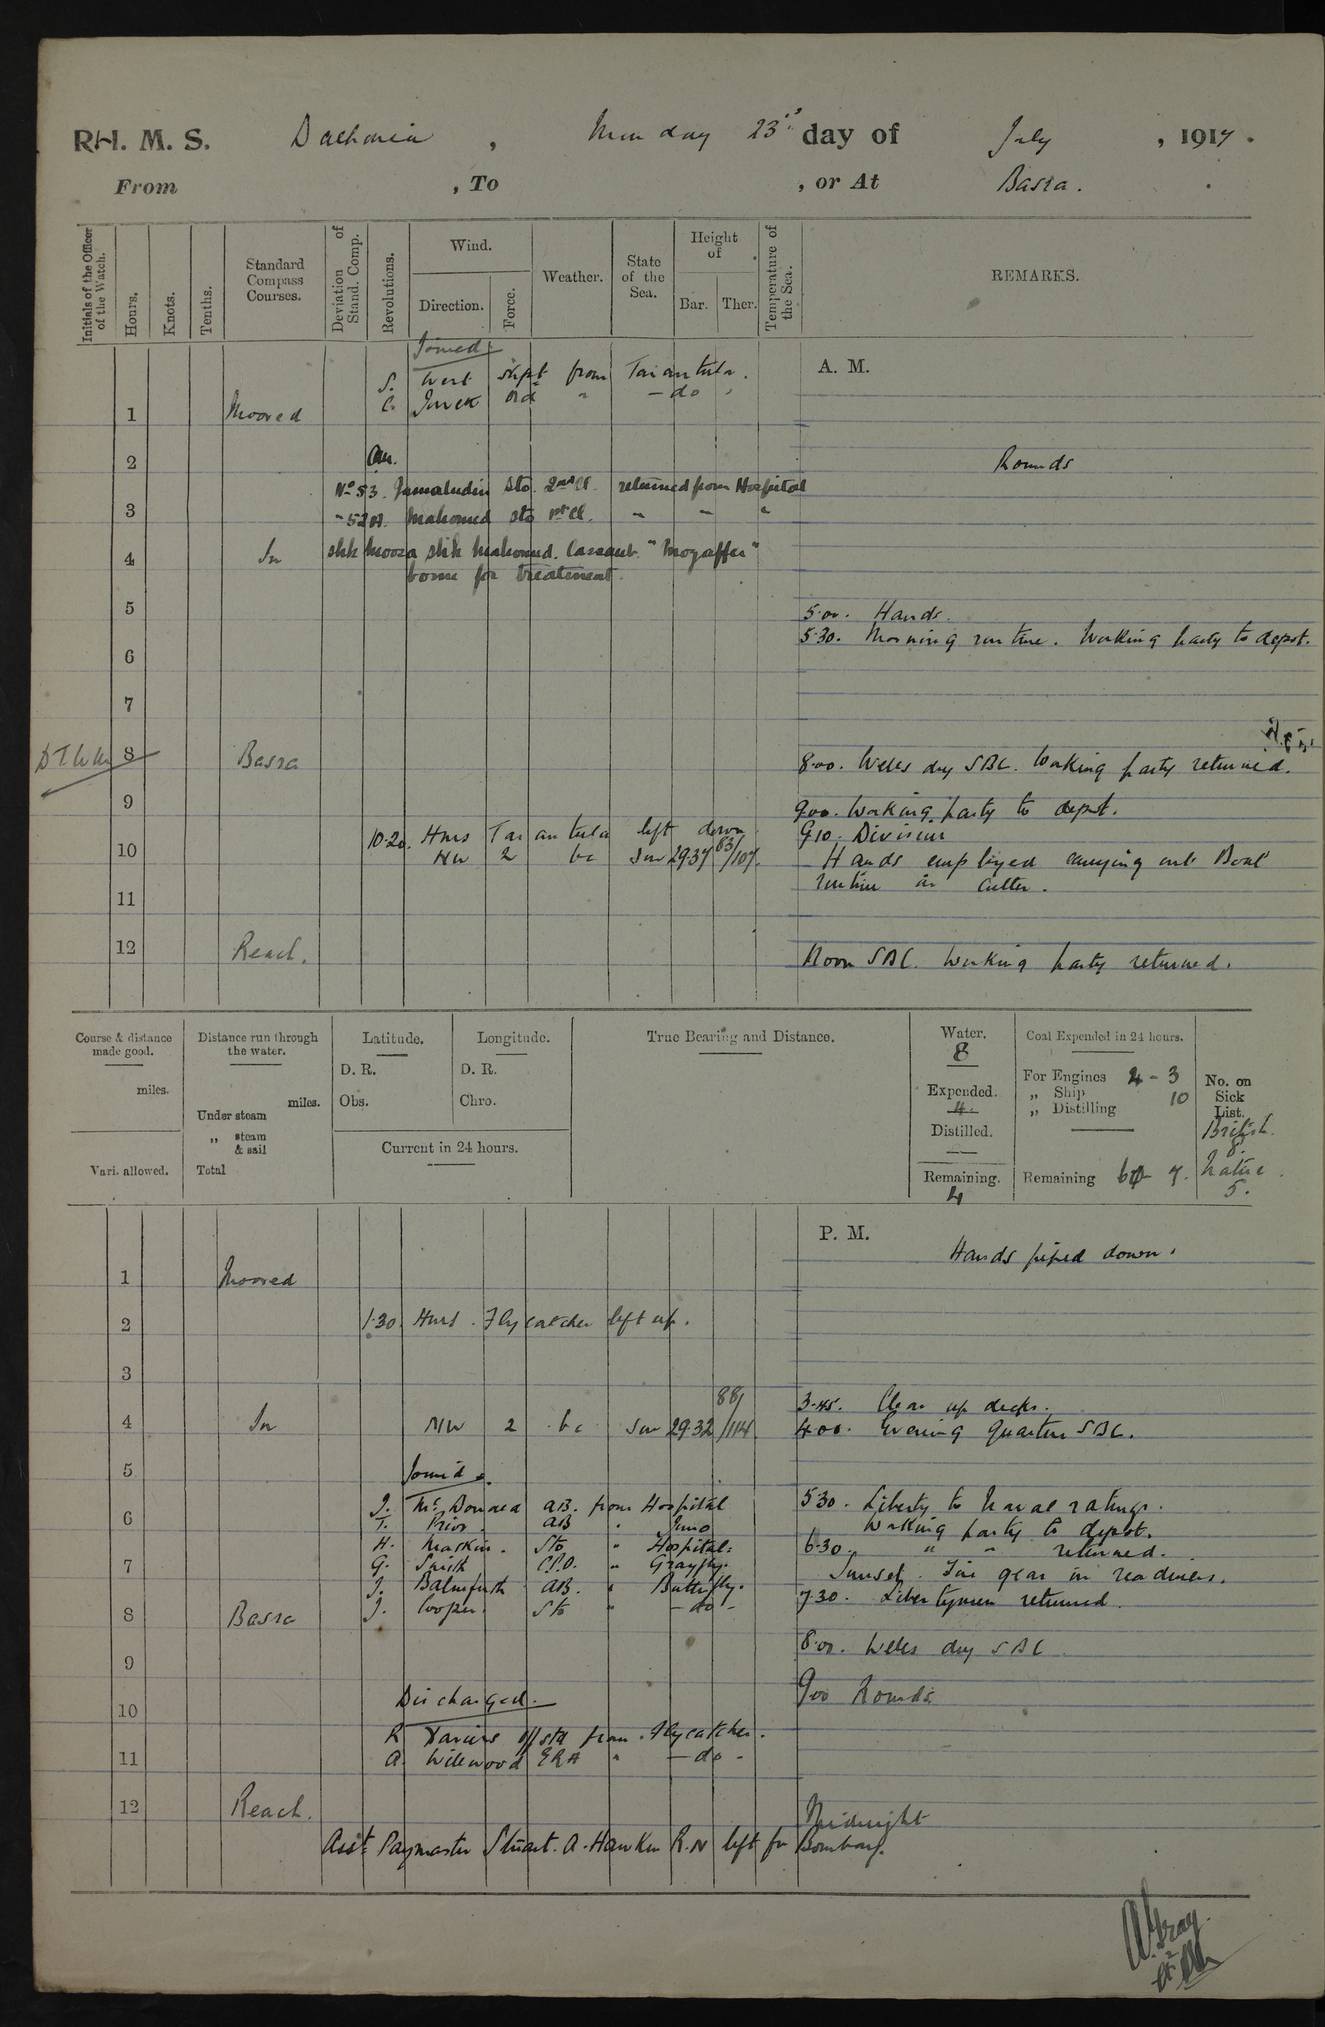 R.H. M. S. Dalhousie, Monday 23rd day of July, 1917.
From , To , or At Basra.
Initials of the Officer of the Watch.
Hours.
Knots.
Tenths.
Standard Compass Courses.
Deviation of Stand. Comp.
Revolutions.
Wind.
Direction.
Force.
Weather.
State of the Sea.
Height of
Bar. Ther.
Temperature of the Sea.
REMARKS.
Joined
A. M.
S. West shipt from Tarantula.
C. ord " - do "
1 Moored
2 Rounds
No 53. Jamaludin Sto. 2nd Cl. returned from Hospital
3
Mahomed Sto 1st Cl. " " "
4 In Shk Moosa Shk Mahomed. Cassaub. "Mozaffer"
borne for treatment.
5 5.00. Hands.
5.30. Morning routine. Working party to depot.
6
7
8 Basra 8.00. Weeks day SBC. Working party returned.
9 9.00. Working party to depot.
10.20. HMS Tarantula left down 9.10. Divisions
10 NW 2 bc Sm 29.37 83/107. Hands employed carrying out Boat
routine in Cutter.
11
12 Reach. Noon SBC. Working party returned.
Course & distance made good.
miles.
Vari. allowed.
Distance run through the water.
miles.
Under steam
" steam & sail
Total
Latitude.
D. R.
Obs.
Longitude.
D. R.
Chro.
Current in 24 hours.
True Bearing and Distance.
Water.
8
Expended.
4.
Distilled.
—
Remaining.
4
Coal Expended in 24 hours.
For Engines 4 - 3
" Ship 10
" Distilling
Remaining 7.
No. on Sick List.
British
8.
Native
5.
P. M.
Hands piped down.
1 Moored
2 1.30. HMS. Flycatcher left up.
3
88/ 3.45. Clear up decks.
4 In NW 2 bc Sm 29.32 /114 4.00. Evening quarters SBC.
5 Joined
J. McDonald AB. from Hospital 5.30. Liberty to Naval ratings.
6 T. Prior. AB " Juno Working party to depot.
H. Maskin. Sto " Hospital. 6.30. " " returned.
7 G. Smith C.P.O. " Grayfly. Sunset. Fire gear in readiness.
J. AB. " Butterfly. 7.30. Libertymen returned.
8 Basra J. Cooper. Sto " - do -
8.00. Weeks day SBC
9
Discharged. 9.00 Rounds
10
R from. Flycatcher.
11 A. Wilewood ERA " - do -
12 Reach. Midnight
Asst Paymaster Stuart. A. Hawken R.N left for Bombay.
A. Gray.